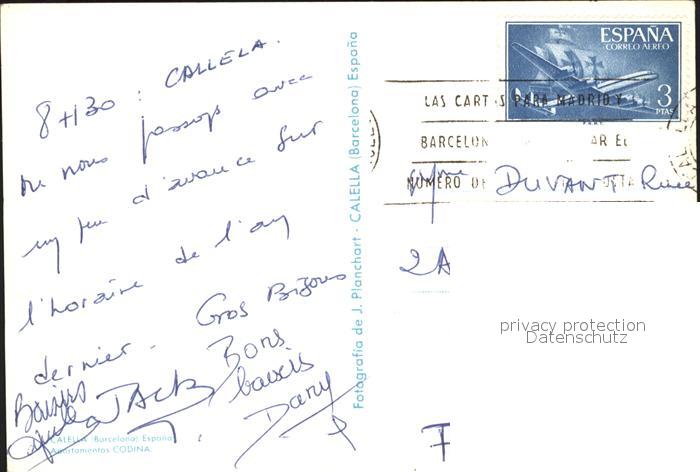 8H30 : CALLELA.
ou nous passons avec
un peu d'avance sur
l'horaire de l'an
dernier. Gros Bizous
Baisers
JACK
Bons
baisers
Dany
CALELLA (Barcelona) España
Apartamentos CODINA.
Fotografía de J. Planchart - CALELLA (Barcelona) España
ESPAÑA
CORREO AEREO
3
PTAS
LAS CART S PARA MADRID Y
BARCELON AR EL
NUMERO DE
DUVANT
2A
privacy protection
Datenschutz